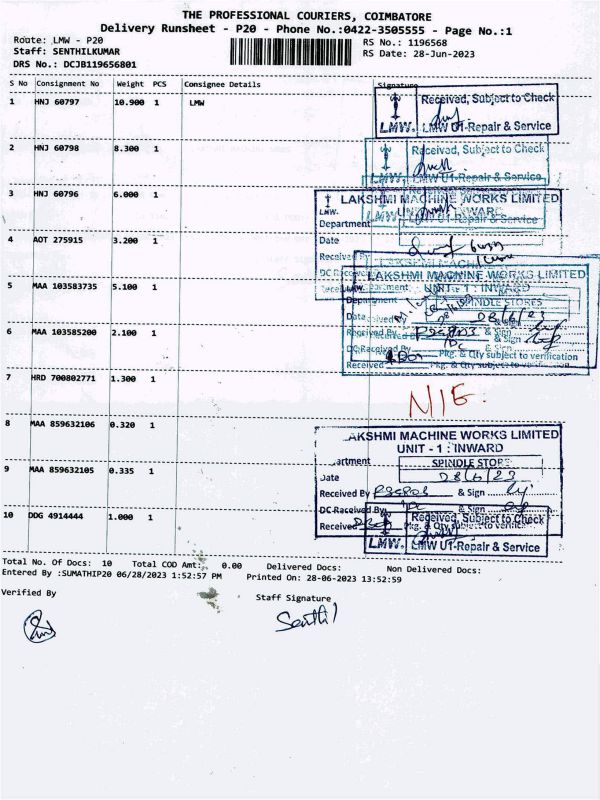 THE PROFESSIONAL COURIERS, COIMBATORE
Delivery Runsheet - P20 - Phone No.:0422-3505555 - Page No.:1
Route: LMW - P20
RS No.: 1196568
Staff: SENTHILKUMAR
RS Date: 28-Jun-2023
DRS No.: DCJB119656801
S No Consignment No Weight PCS Consignee Details Signature
1 HNJ 60797 10.900 1 LMW
Received, Subject to Check
LMW. LMW U1-Repair & Service
2 HNJ 60798 8.300 1
Received, Subject to Check
LMW U1-Repair & Service
3 HNJ 60796 6.000 1
LAKSHMI MACHINE WORKS LIMITED
LMW.
Department
4 AOT 275915 3.200 1
Date
Received By
DC Received
LAKSHMI MACHINE WORKS LIMITED
5 MAA 103583735 5.100 1
UNIT - 1 : INWARD
SPINDLE STORES
Date 28/6/23
6 MAA 103585200 2.100 1
Received By & Sign
DC Received By & Sign
Pkg. & Qty subject to verification
Received Pkg. & Qty subject to verification
7 HRD 700802771 1.300 1
NIE.
8 MAA 859632106 0.320 1
LAKSHMI MACHINE WORKS LIMITED
UNIT - 1 : INWARD
9 MAA 859632105 0.335 1
SPINDLE STORES
Date 28/6/23
Received By & Sign
DC Received By & Sign
10 DDG 4914444 1.000 1
Received Pkg. & Qty subject to
Received, Subject to Check
LMW. LMW U1-Repair & Service
Total No. Of Docs: 10 Total COD Amt: 0.00 Delivered Docs: Non Delivered Docs:
Entered By :SUMATHIP20 06/28/2023 1:52:57 PM Printed On: 28-06-2023 13:52:59
Verified By
Staff Signature
Senthil